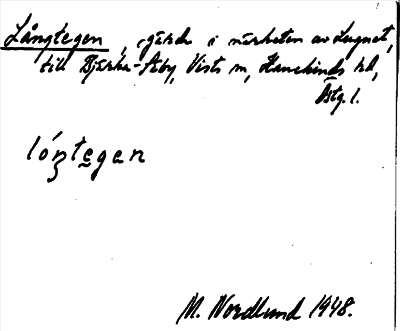 Långtegen, gärde i närheten av Lugnet,
till Bjärka-Säby, Vists sn, Hanekinds hd,
Östg. l.
lóntegan
M. Nordlund 1948.